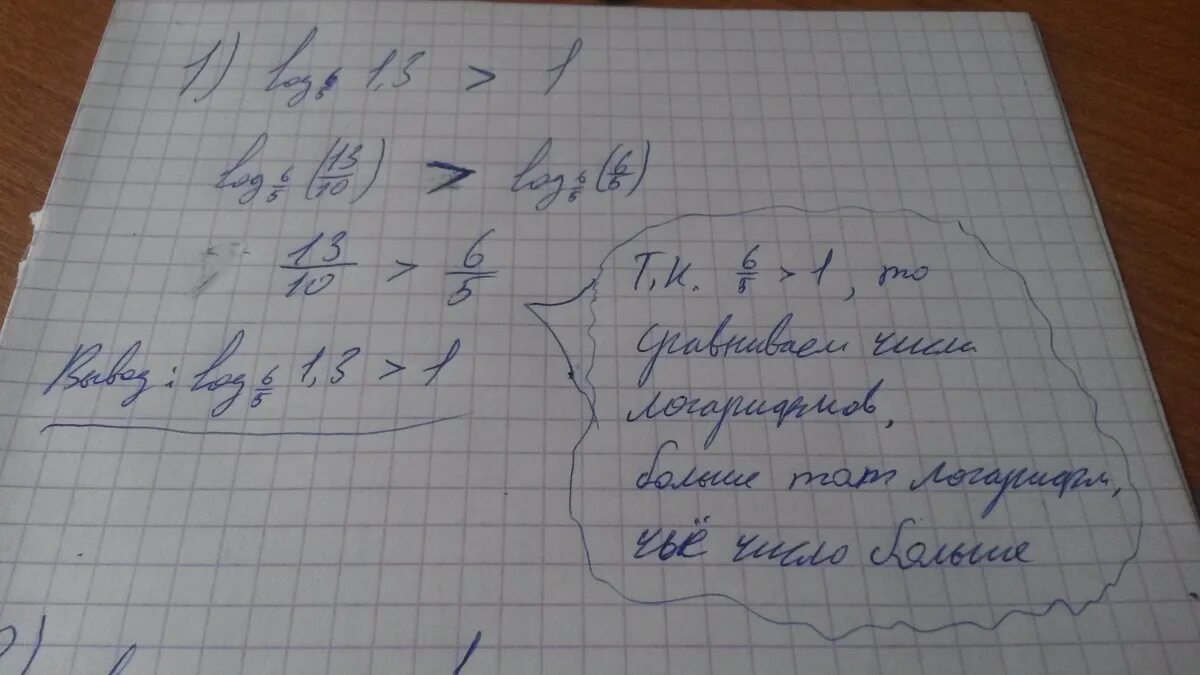 1) log 6/5 1,3 > 1
log 6/5 (13/10) > log 6/5 (6/5)
13/10 > 6/5
Вывод: log 6/5 1,3 > 1
Т.К. 6/5 > 1, то
сравниваем числа
логарифмов,
больше тот логарифм,
чьё число больше